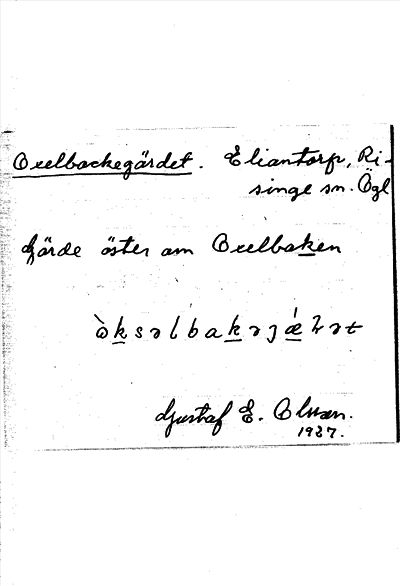 Oxelbackegärdet. Eliantorp, Ri-
singe sn. Ögl
Gärde öster om Oxelbaken
ὼksəlbakəȷǽɀət
Gustaf E. Olsson.
1937.